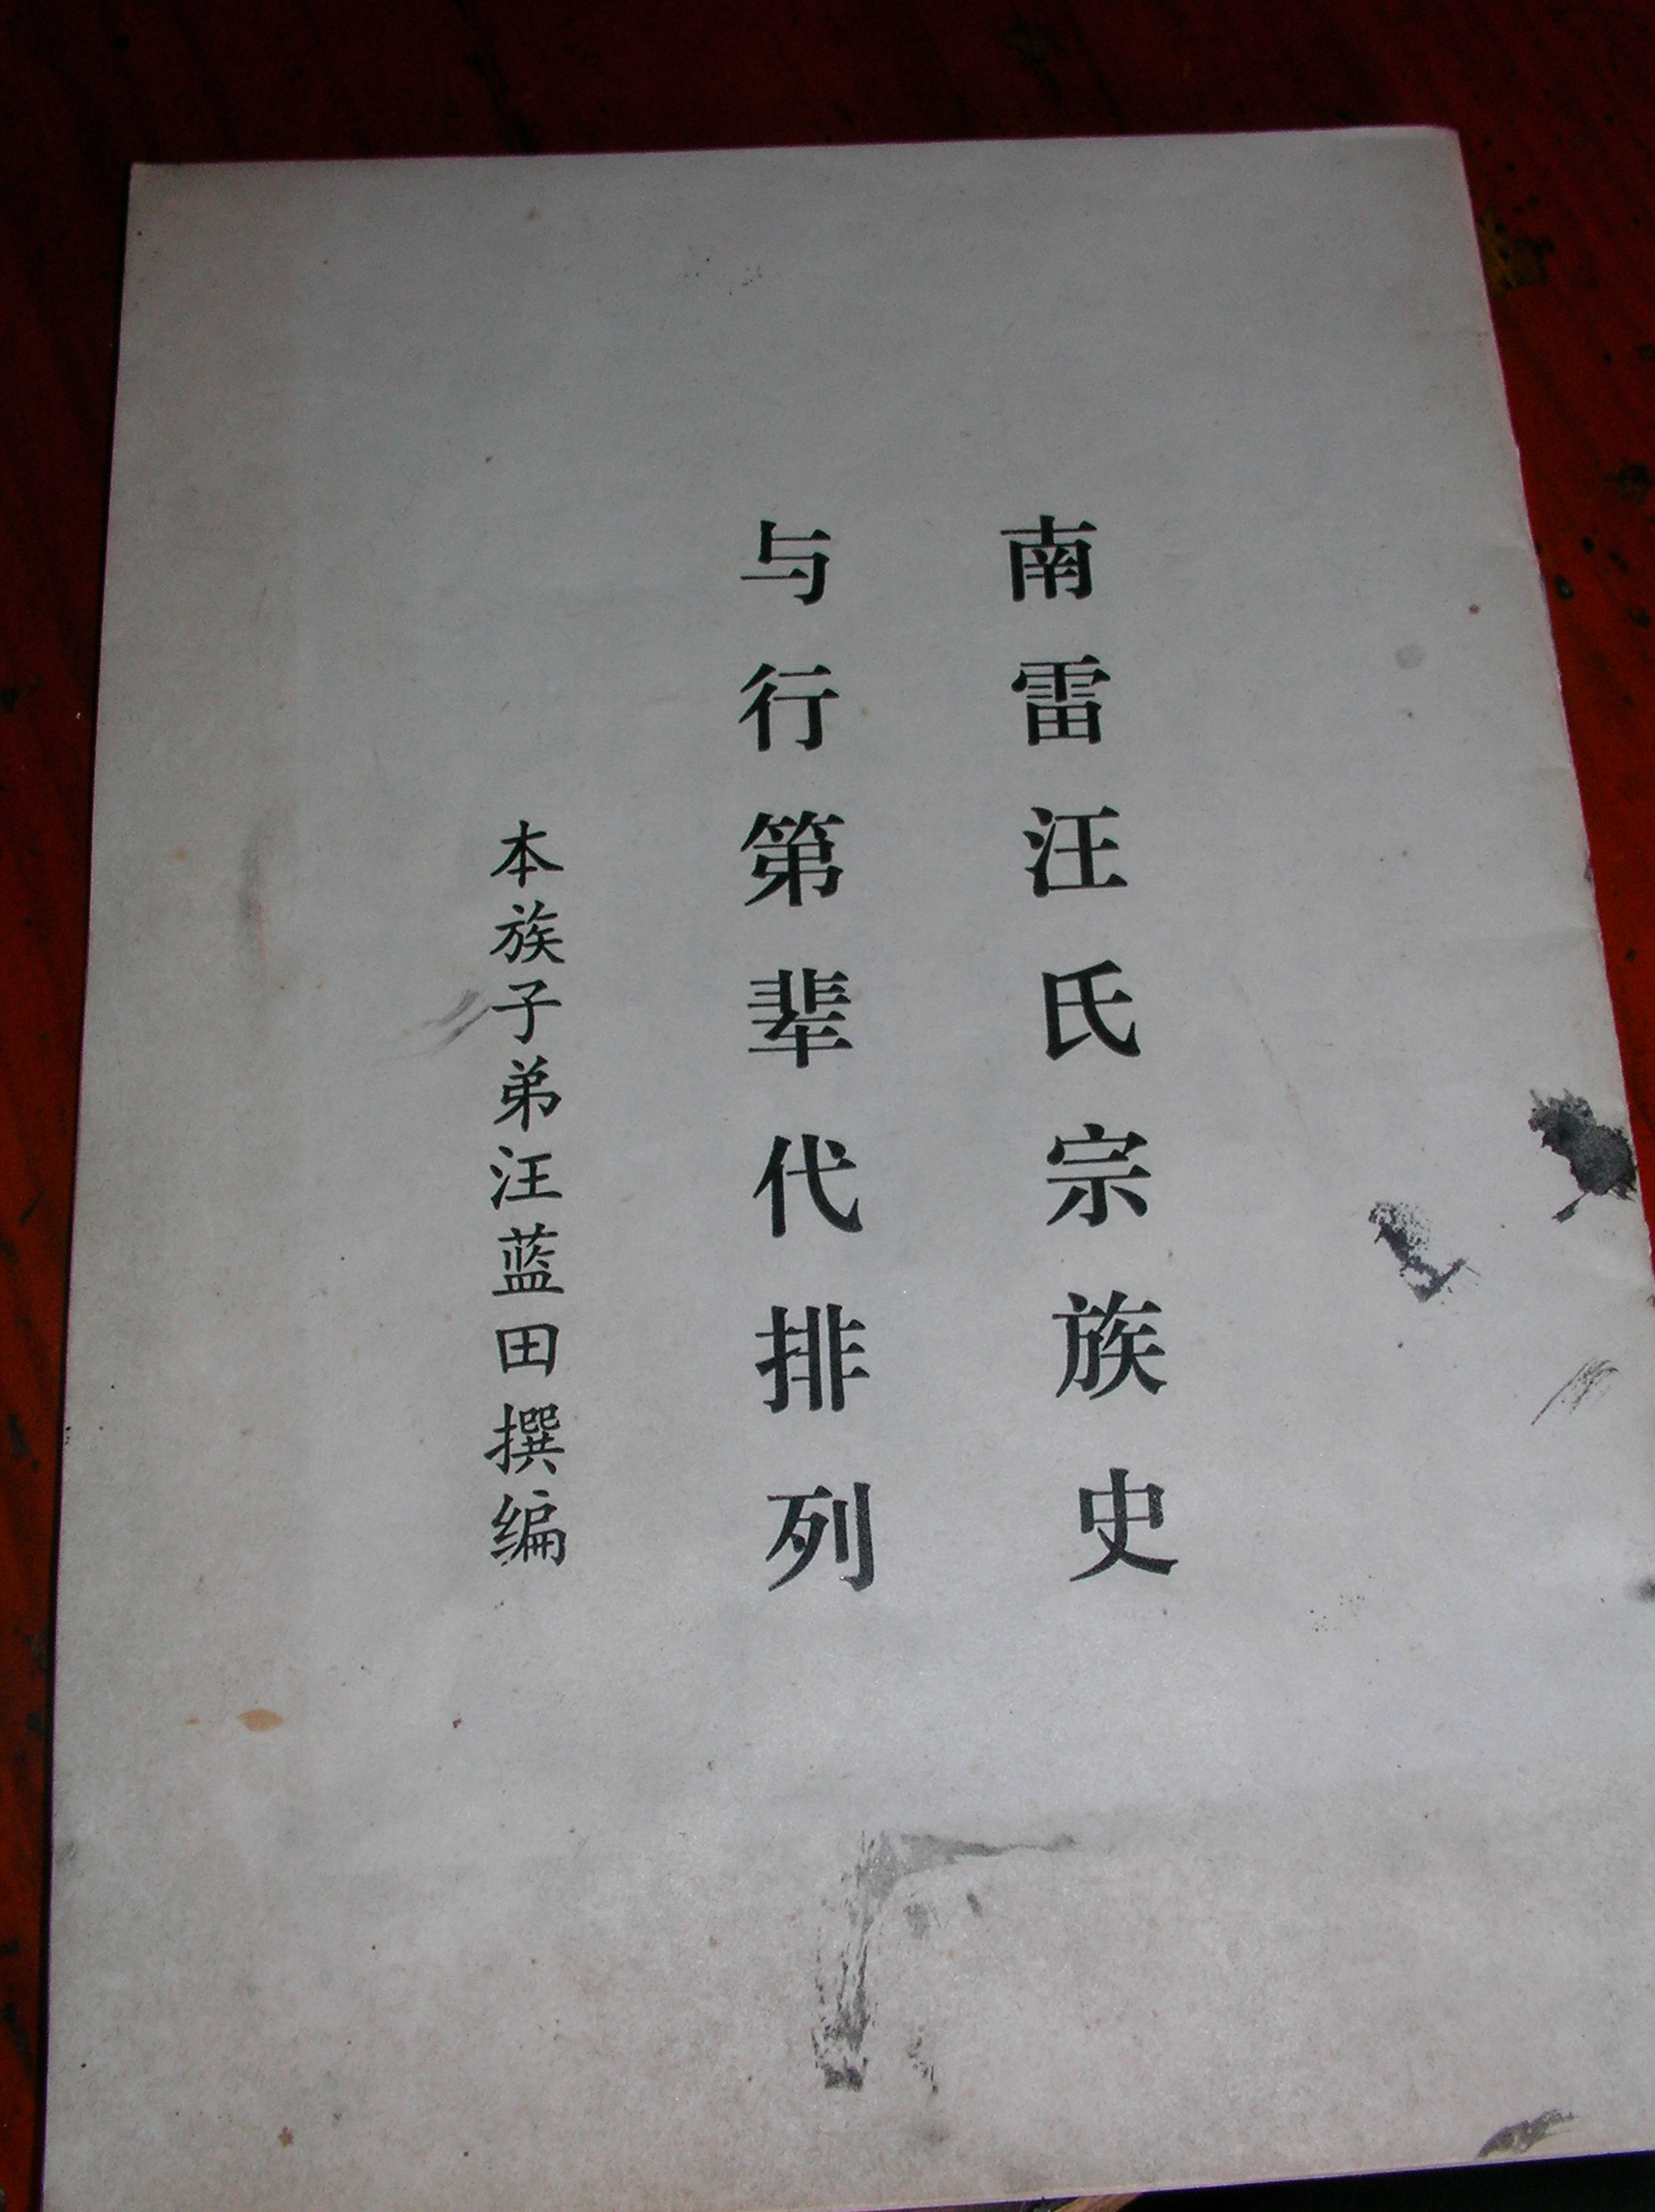 南雷汪氏宗族史
与行第辈代排列
本族子弟汪蓝田撰编